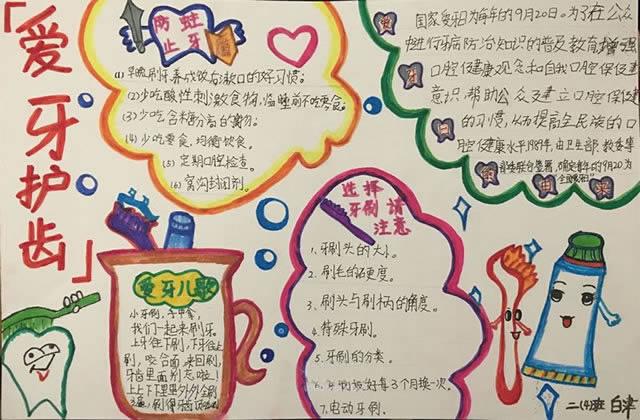 「爱牙护齿」
防蛀
止牙
(1) 早晚刷牙养成饭后漱口的好习惯;
(2) 少吃酸性刺激食物,临睡前不吃零食。
(3) 少吃含糖分高的食物。
(4) 少吃零食,均衡饮食。
(5) 定期口腔检查。
(6) 窝沟封闭剂。
爱牙日的由来
国家爱牙日为每年的9月20日。为了在公众
中进行牙病防治知识的普及教育,增强
口腔健康观念和自我口腔保健
意识,帮助公众建立口腔保健
的习惯,从而提高全民族的口
腔健康水平1989年,由卫生部、教委等
部委联合签署,确定每年的9月20为
爱牙儿歌
小牙刷,手中拿,
我们一起来刷牙。
上牙往下刷,下牙往上
刷,咬合面来回刷,
牙齿里面别忘啦!
上上下下里里外外全刷
选择
牙刷请
注意
1、牙刷头的大小。
2、刷毛的硬度。
3、刷头与刷柄的角度。
4、特殊牙刷。
5、牙刷的分类。
6、牙刷最好每3个月换一次。
7、电动牙刷。
二(4)班